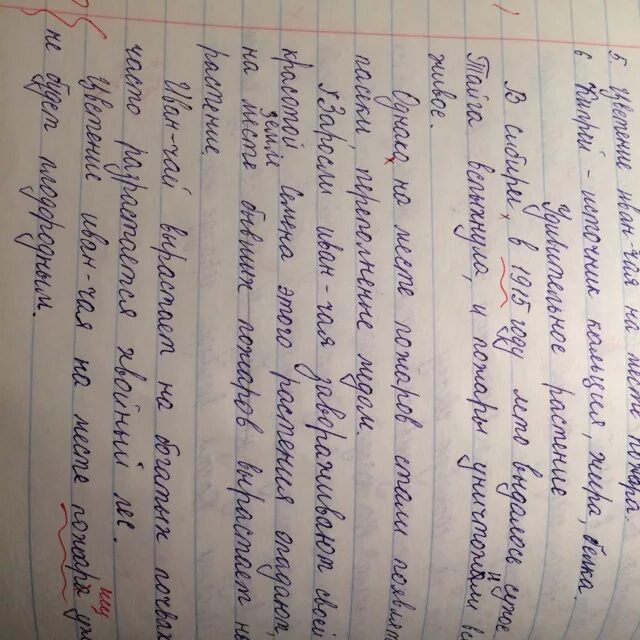 5. Цветение иван-чая на месте пожара.
6 Кипрей - источник кальция, жира, белка.
Удивительное растение
В сибири, в 1915 году лето выдалось
Тайга вспыхнула, и пожары уничтожили
живое.
Однако на месте пожаров стали
пасеки, переполненные мёдом.
Заросли иван-чая завораживают своей
красотой. Зимой семена этого растения опадают,
на месте бывших пожаров вырастает
растение.
Иван-чай вырастает на богатых почвах
часто разрастается хвойный лес.
Цветение иван-чая на месте пожара
не будет плодородным.